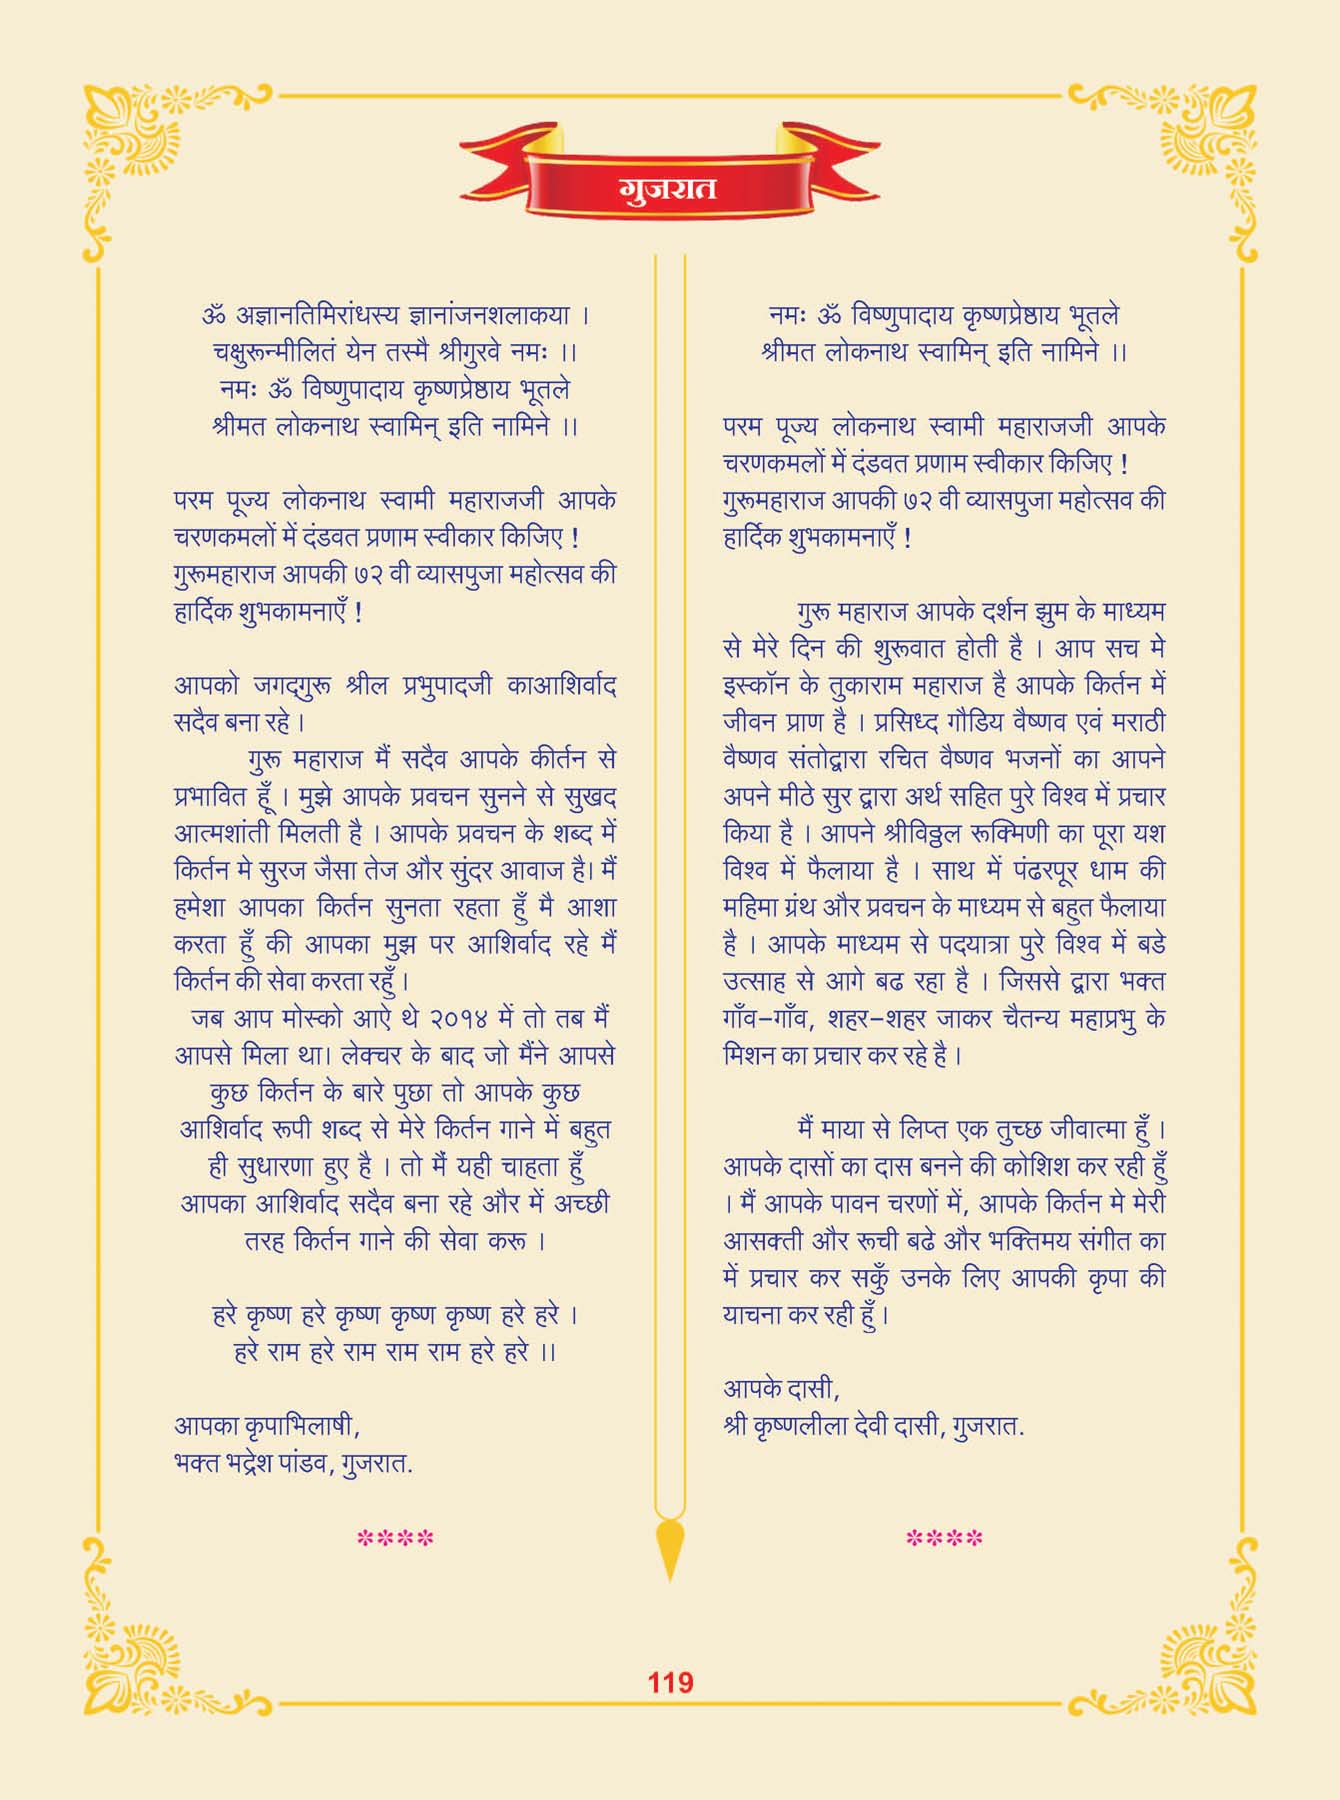 गुजरात
ॐ अज्ञानतिमिरांधस्य ज्ञानांजनशलाकया ।
चक्षुरून्मीलितं येन तस्मै श्रीगुरवे नमः ।।
नमः ॐ विष्णुपादाय कृष्णप्रेष्ठाय भूतले
श्रीमत लोकनाथ स्वामिन् इति नामिने ।।
परम पूज्य लोकनाथ स्वामी महाराजजी आपके
चरणकमलों में दंडवत प्रणाम स्वीकार किजिए !
गुरूमहाराज आपकी ७२ वी व्यासपुजा महोत्सव की
हार्दिक शुभकामनाएँ !
आपको जगद्गुरू श्रील प्रभुपादजी काआशिर्वाद
सदैव बना रहे ।
गुरू महाराज मैं सदैव आपके कीर्तन से
प्रभावित हूँ । मुझे आपके प्रवचन सुनने से सुखद
आत्मशांती मिलती है । आपके प्रवचन के शब्द में
किर्तन मे सुरज जैसा तेज और सुंदर आवाज है। मैं
हमेशा आपका किर्तन सुनता रहता हुँ मै आशा
करता हुँ की आपका मुझ पर आशिर्वाद रहे मैं
किर्तन की सेवा करता रहुँ ।
जब आप मोस्को आऐ थे २०१४ में तो तब मैं
आपसे मिला था। लेक्चर के बाद जो मैंने आपसे
कुछ किर्तन के बारे पुछा तो आपके कुछ
आशिर्वाद रूपी शब्द से मेरे किर्तन गाने में बहुत
ही सुधारणा हुए है । तो मैं यही चाहता हुँ
आपका आशिर्वाद सदैव बना रहे और में अच्छी
तरह किर्तन गाने की सेवा करू ।
हरे कृष्ण हरे कृष्ण कृष्ण कृष्ण हरे हरे ।
हरे राम हरे राम राम राम हरे हरे ।।
आपका कृपाभिलाषी,
भक्त भद्रेश पांडव, गुजरात.
****
नमः ॐ विष्णुपादाय कृष्णप्रेष्ठाय भूतले
श्रीमत लोकनाथ स्वामिन् इति नामिने ।।
परम पूज्य लोकनाथ स्वामी महाराजजी आपके
चरणकमलों में दंडवत प्रणाम स्वीकार किजिए !
गुरूमहाराज आपकी ७२ वी व्यासपुजा महोत्सव की
हार्दिक शुभकामनाएँ !
गुरू महाराज आपके दर्शन झुम के माध्यम
से मेरे दिन की शुरूवात होती है । आप सच मे
इस्कॉन के तुकाराम महाराज है आपके किर्तन में
जीवन प्राण है । प्रसिध्द गौडिय वैष्णव एवं मराठी
वैष्णव संतोद्वारा रचित वैष्णव भजनों का आपने
अपने मीठे सुर द्वारा अर्थ सहित पुरे विश्व में प्रचार
किया है । आपने श्रीविठ्ठल रूक्मिणी का पूरा यश
विश्व में फैलाया है । साथ में पंढरपूर धाम की
महिमा ग्रंथ और प्रवचन के माध्यम से बहुत फैलाया
है । आपके माध्यम से पदयात्रा पुरे विश्व में बडे
उत्साह से आगे बढ रहा है । जिससे द्वारा भक्त
गाँव–गाँव, शहर–शहर जाकर चैतन्य महाप्रभु के
मिशन का प्रचार कर रहे है ।
मैं माया से लिप्त एक तुच्छ जीवात्मा हुँ ।
आपके दासों का दास बनने की कोशिश कर रही हुँ
। मैं आपके पावन चरणों में, आपके किर्तन मे मेरी
आसक्ती और रूची बढे और भक्तिमय संगीत का
में प्रचार कर सकुँ उनके लिए आपकी कृपा की
याचना कर रही हुँ ।
आपके दासी,
श्री कृष्णलीला देवी दासी, गुजरात.
****
119